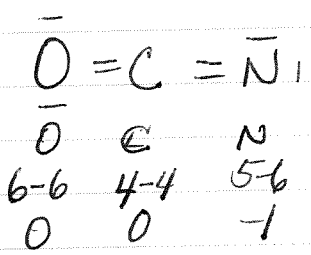 Ō=C=N̄ı
Ō C N
6-6 4-4 5-6
0 0 -1